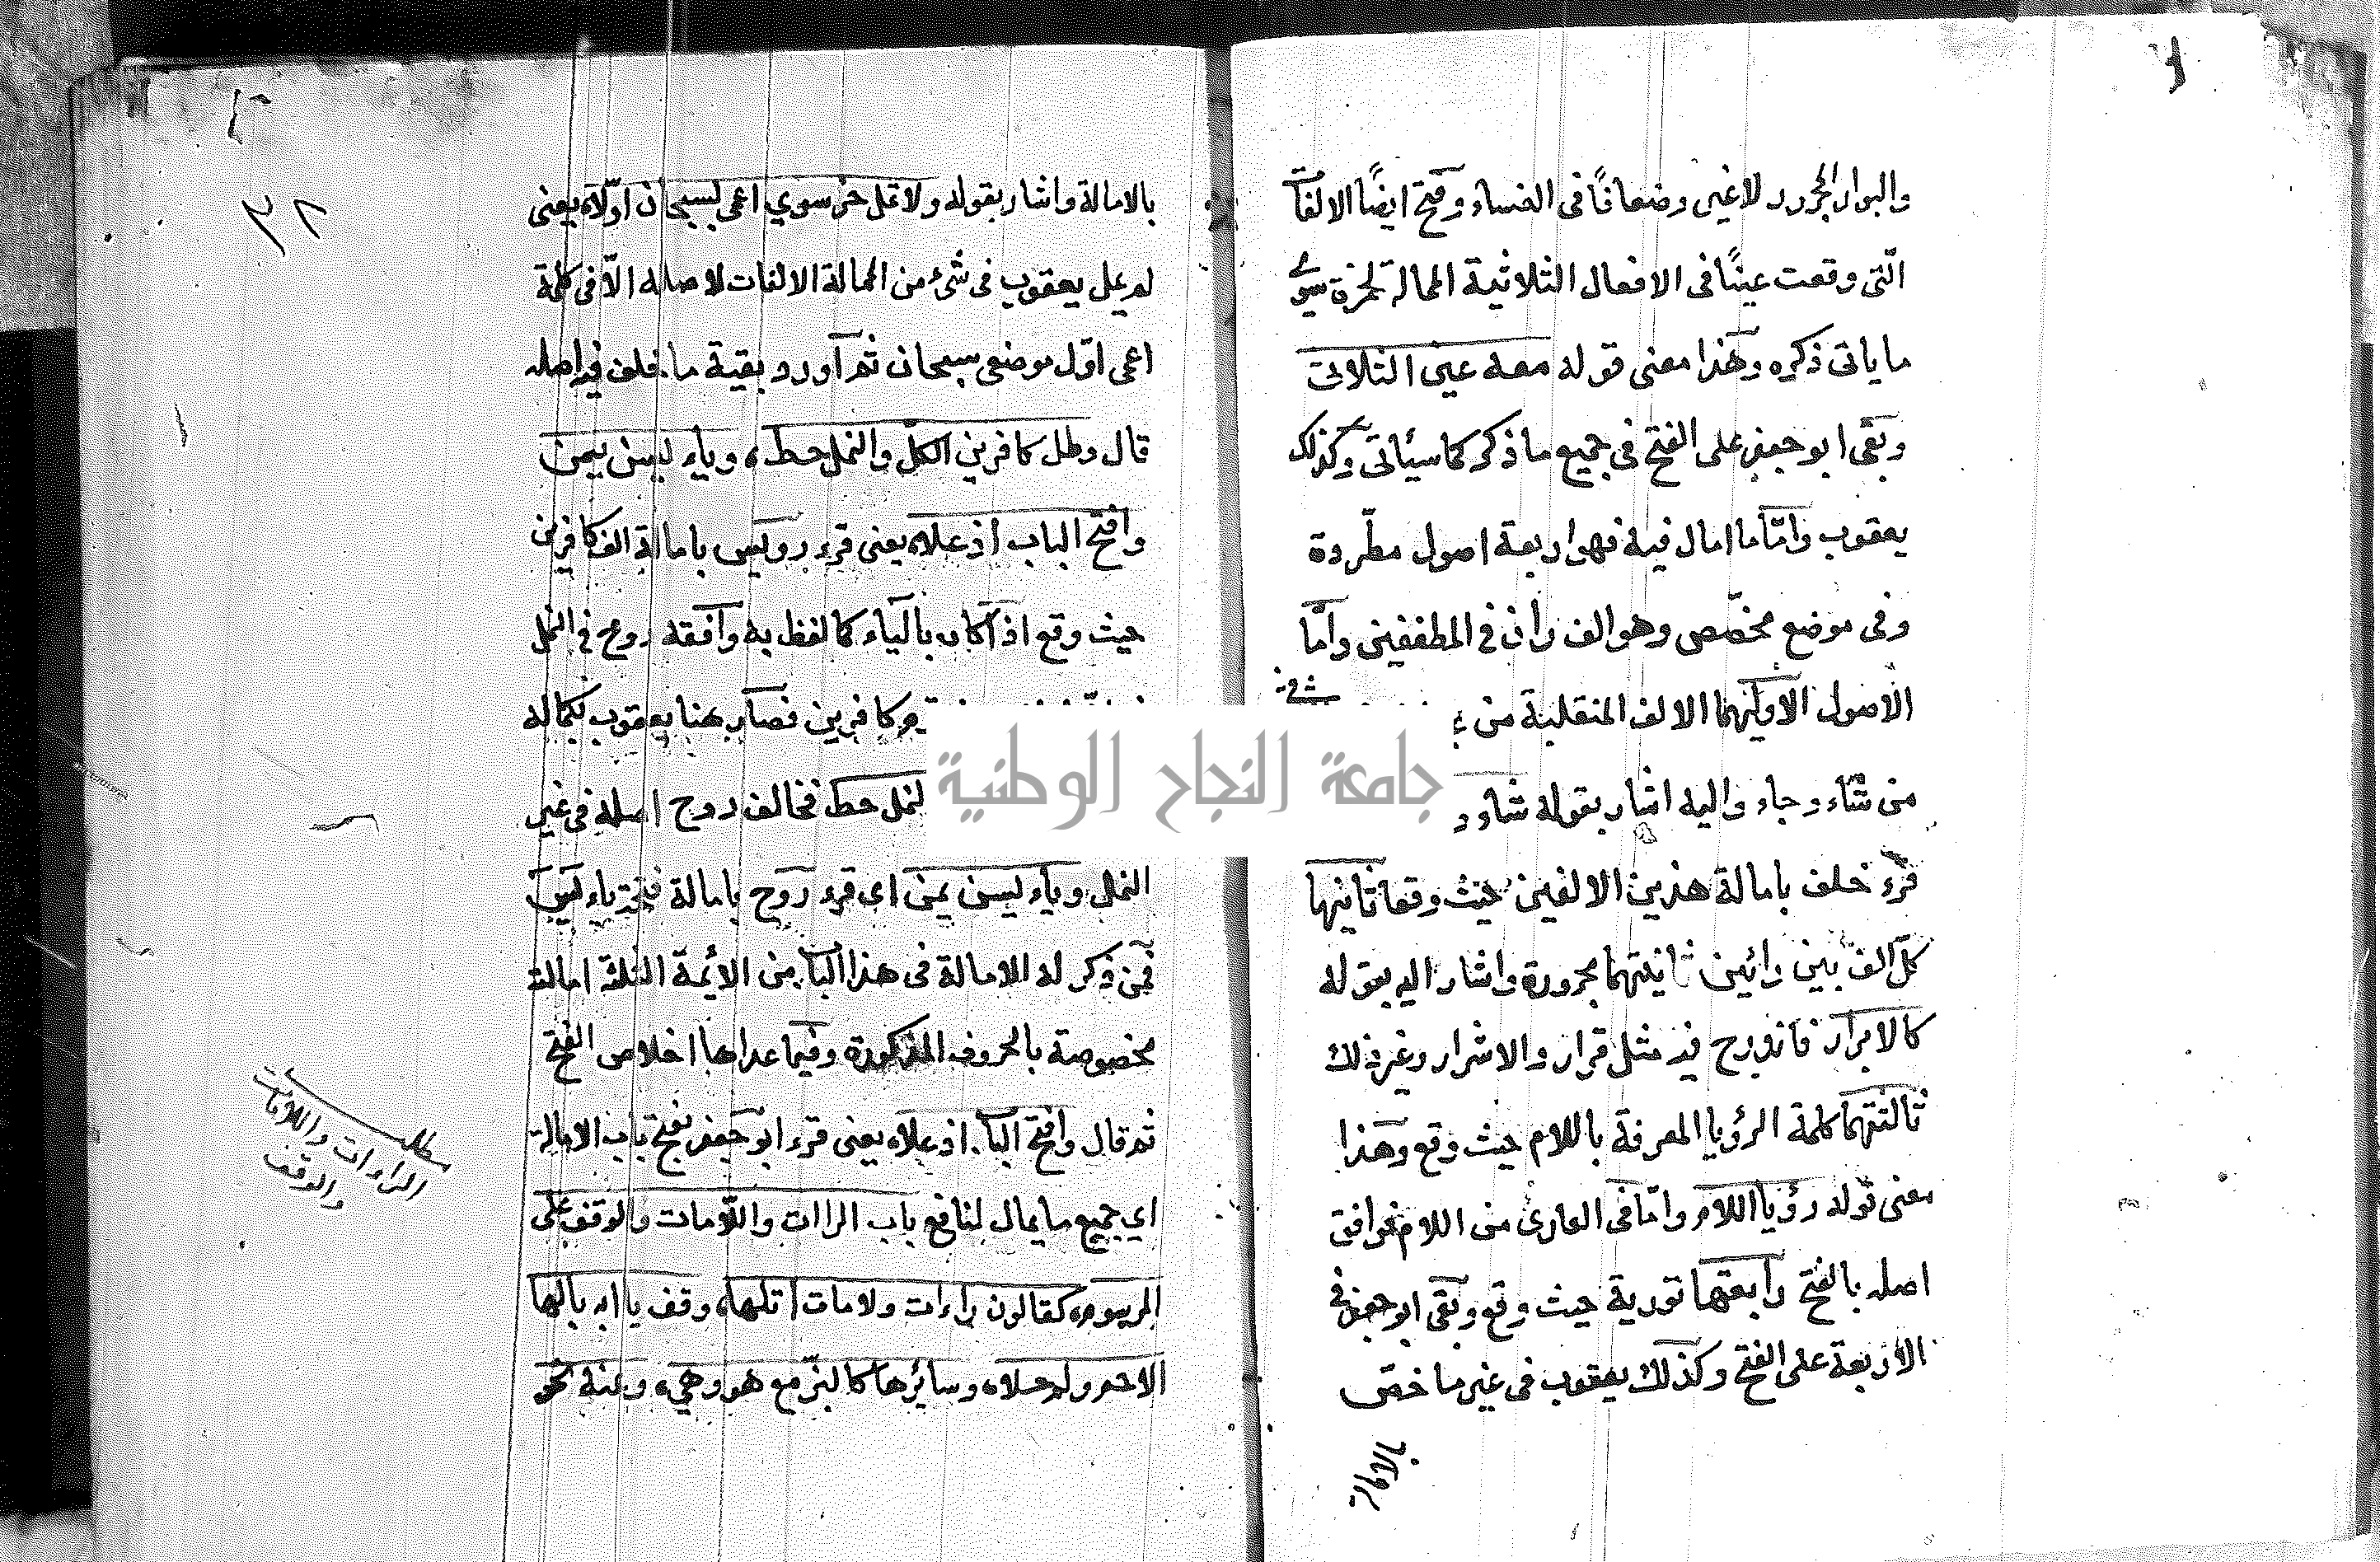 والبوار المجرور لا غير وضعافًا فى النساء وفتح ايضًا الالفات
الّتى وقعت عينًا فى الافعال الثلاثية الممالة لحمزة سوى
ما ياتى ذكره وهذا معنى قوله معه عين الثلاثى
وبقى ابو جعفر على الفتح فى جميع ما ذكر كما سيأتى وكذلك
يعقوب وامّا ما امال فيه فهو اربعة اصول مطّردة
وفى موضع مخصّص وهو الف ران فى المطففين وامّا
الاصول الاولهما الالف المنقلبة من
من شاء وجاء واليه اشار بقوله شاء و
قرء خلف بامالة هذين الالفين حيث وقعا ثانيها
كلّ الف بين رائين ثانيتهما مجرورة واشار اليه بقوله
كالابرار فاندرج فيه مثل قرار والاشرار وغير ذلك
ثالثتهما كلمة الرؤيا المعرفة باللام حيث وقع وهذا
معنى قوله رؤيا اللام وامّا فى العارى من اللام فوافق
اصله بالفتح رابعتها تورية حيث وقع وبقى ابو جعفر فى
الاربعة على الفتح وكذلك يعقوب فى غير ما خصّ
بالامالة
٣٨
بالامالة واشار بقوله ولا تمل حز سوى اعمى بسبحان اوّلا يعنى
لم يمل يعقوب فى شئ من الممالة الالفات لاصله الّا فى كلمة
اعمى اوّل موضعى سبحان ثم اورد بقية ما خلف فيه اصله
قال وطل كافرين الكلّ والنمل حط وياء ليس يمن
وافتح الباب اذ علا يعنى قرء رويس بامالة الف كافرين
حيث وقع اذا كان بالياء كما لفظ به وافقه روح فى النمل
كافرين فصار هنا يعقوب بكماله
لنمل حط فخالف روح اصله فى غير
النمل وياء ليس يمن اى قرء روح بامالة فتحة ياء يس
فمن ذكر له الامالة فى هذا الباب من الائمة الثلثة امالته
مخصوصة بالحروف المذكورة وفيما عداها اخلاص الفتح
ثم قال وافتح الباب اذ علا يعنى قرء ابو جعفر بفتح باب الامالة
اى جميع ما يمال لنافع باب الراات واللّامات والوقف على
المرسوم كقالون راءات ولامات اتلها وقف يا ابه بالها
الا حم ولم حلا وسائرها كالبزّ مع هو وهى وعنه نحو
مطلب
الراءات واللامات
والوقف
جامعة النجاح الوطنية